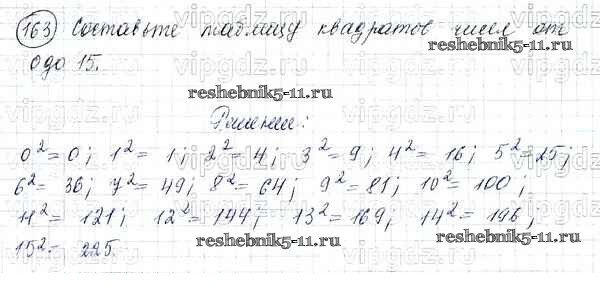 163 Составьте таблицу квадратов чисел от
0 до 15.
reshebnik5-11.ru
reshebnik5-11.ru
Решение:
0² = 0; 1² = 1; 2² = 4; 3² = 9; 4² = 16; 5² = 25;
6² = 36; 7² = 49; 8² = 64; 9² = 81; 10² = 100;
11² = 121; 12² = 144; 13² = 169; 14² = 196;
reshebnik5-11.ru
reshebnik5-11.ru
15² = 225.